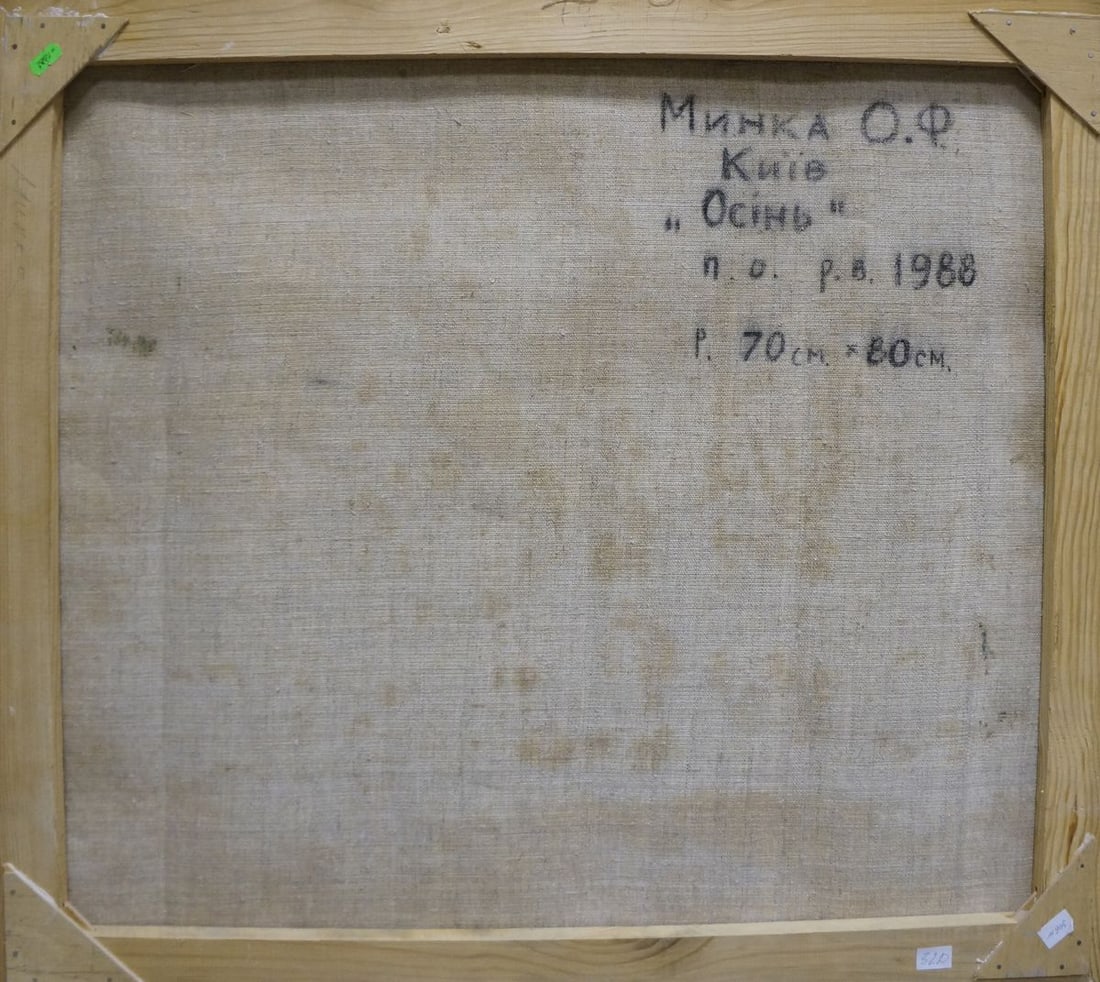 Минка О.Ф.
Київ
„Осінь"
п. о. р.в. 1988
Р. 70см. × 80см.